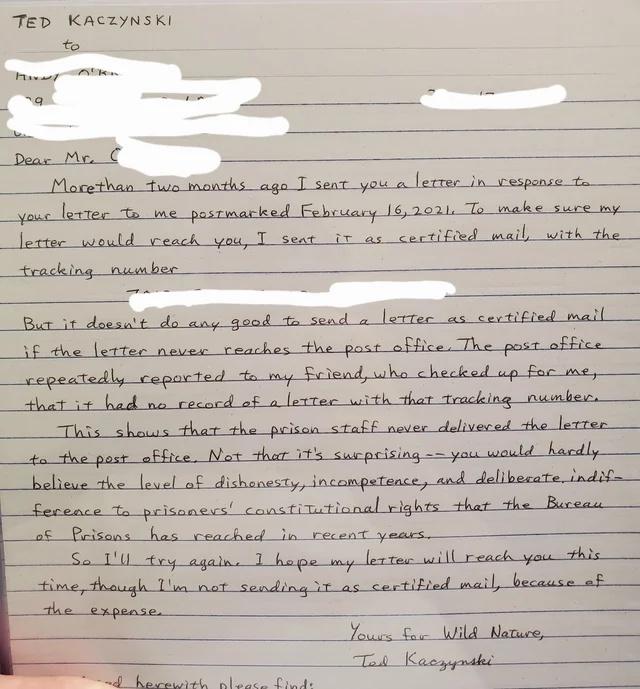 TED KACZYNSKI
to
Dear Mr.
Morethan two months ago I sent you a letter in response to
your letter to me postmarked February 16, 2021. To make sure my
letter would reach you, I sent it as certified mail, with the
tracking number
But it doesn't do any good to send a letter as certified mail
if the letter never reaches the post office. The post office
repeatedly reported to my friend, who checked up for me,
that it had no record of a letter with that tracking number.
This shows that the prison staff never delivered the letter
to the post office. Not that it's surprising -- you would hardly
believe the level of dishonesty, incompetence, and deliberate indif-
ference to prisoners' constitutional rights that the Bureau
of Prisons has reached in recent years.
So I'll try again. I hope my letter will reach you this
time, though I'm not sending it as certified mail, because of
the expense.
Yours for Wild Nature,
Ted Kaczynski
herewith please find: